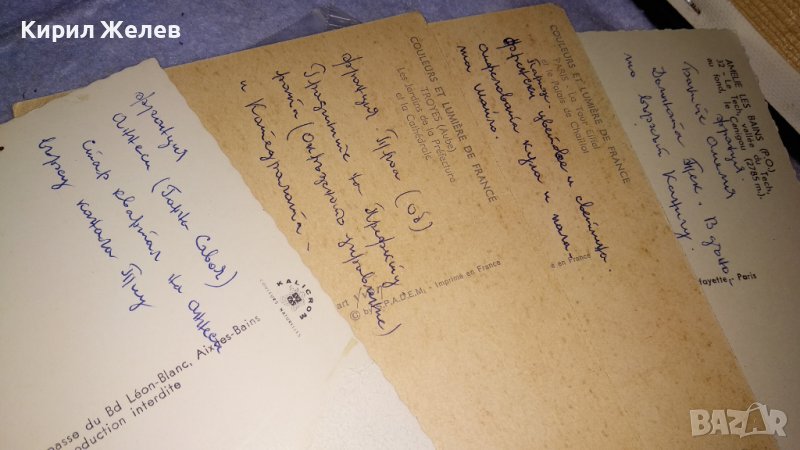 Кирил Желев
франция
Аннеси (Горна Савоя)
Стар квартал на Аннеси
върху канала Тиу
XALICROM
COULEURS NATURELLES
passe du Bd Léon-Blanc, Aix-les-Bains
oduction interdite
COULEURS ET LUMIÈRE DE FRANCE
TROYES (Aube)
Les Jardins de la Préfecture
et la Cathédrale
франция. Троа (Об)
Градините на Префекту
рата (Окръжното управление)
и Катедралата -
art
© by S.P.A.D.E.M. - Imprimé en France
COULEURS ET LUMIÈRE DE FRANCE
PARIS
La Tour Eiffel
et le Palais de Chaillot
Париж. цветове и светлина.
френски
Айфеловата кула и палат
на Шайло.
é en France
AMÉLIE LES BAINS (P.O.)
37 - Le Tech, vallée du Tech,
au fond, le Canigou (2785 m).
Бани Амели
франция
Долината Тек. В дъно,
то върхът Канигу.
fayette, Paris
BAZAR